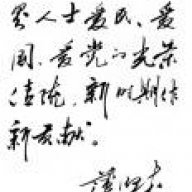 界人士爱民、爱
国、爱党的光荣
传统,新时期作
新贡献。